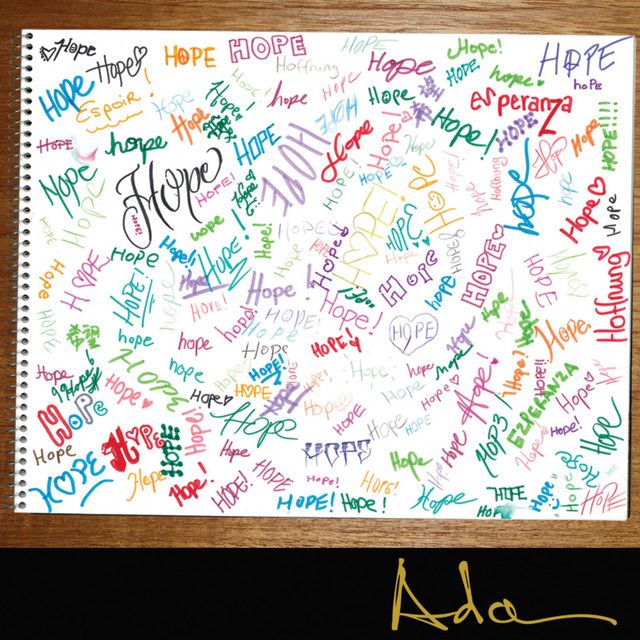 Hope
Hope
HOPE
HOPE
HOPE
Hoffnung
HOPE
Hope
Hope!
HOPE
hope
HOPE
hoPE
Hope
Espoir!
Hope
Hope
Hope!
hope
HOPE
Hope
希望
Hope!
EsperanZa
HOPE
Hope
HOPE!!!!
HOPE
hope
HOPE
Hope
Hope!
Hope
Hope
HOPE
HOPE!
HOPE
HOPE
hope
Hope
Hope
Hoffnung
hope
HOPE
Hope!
HOPE!
HOPE
HOPE
Hope
HOPE
Hoffnung
Hope
HOPE
HOPE!
hope
Hope!
HOPE!
Hope!
HOPE!
Hope!
HOPE
希望
hope
hope
Hope
HOPE!
HOPE
Hope
Hope
Hope
HOPE
Hope
Hope
Hope!
Hope!
ESPERANZA
HOPE!!
HOPE
Hope
HOPE
HOPE
Hope!
Hope
HOPE
HOPE
Hope
Hope!
Hope
HOPE
Hope
Hope!
HOPE!
HOPE
HOPE!
Hope!
Hope!
Hope
HOPE
Hope
HOPE
Ada